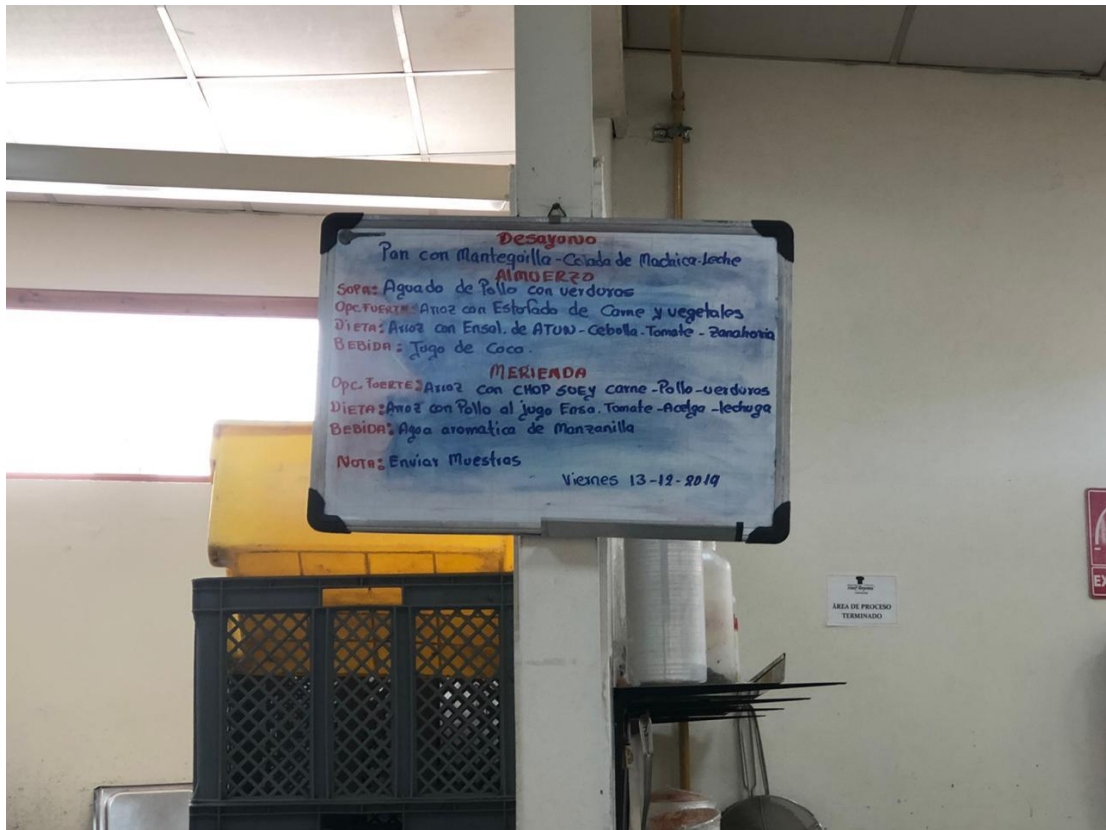 Desayuno
Pan con Mantequilla - Colada de Machica - Leche
ALMUERZO
SOPA: Aguado de Pollo con verduras
Opc. FUERTE: Arroz con Estofado de Carne y vegetales
DIETA: Arroz con Ensal. de ATUN - Cebolla - Tomate - Zanahoria
BEBIDA: Jugo de Coco.
MERIENDA
Opc. FUERTE: Arroz con CHOP SUEY carne - Pollo - verduras
DIETA: Arroz con Pollo al jugo Ensa. Tomate - Acelga - lechuga
BEBIDA: Agua aromatica de Manzanilla
NOTA: Enviar Muestras
Viernes 13-12-2019
ÁREA DE PROCESO
TERMINADO
EX